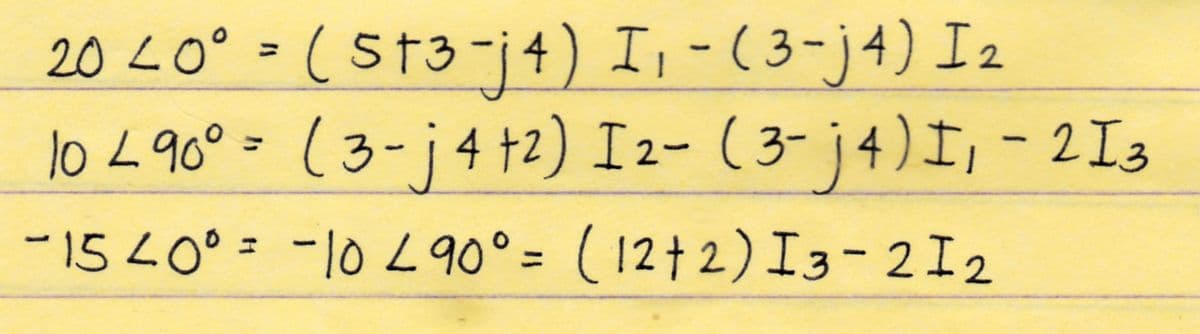 20 ∠0° = (5+3-j4) I₁ - (3-j4) I₂
10 ∠90° = (3-j4+2) I₂- (3-j4) I₁ - 2I₃
-15 ∠0° = -10 ∠90° = (12+2) I₃ - 2I₂